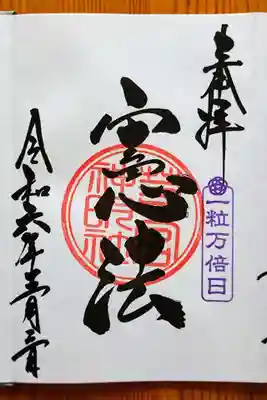 奉拝
一粒万倍日
憲法
令和六年五月三日